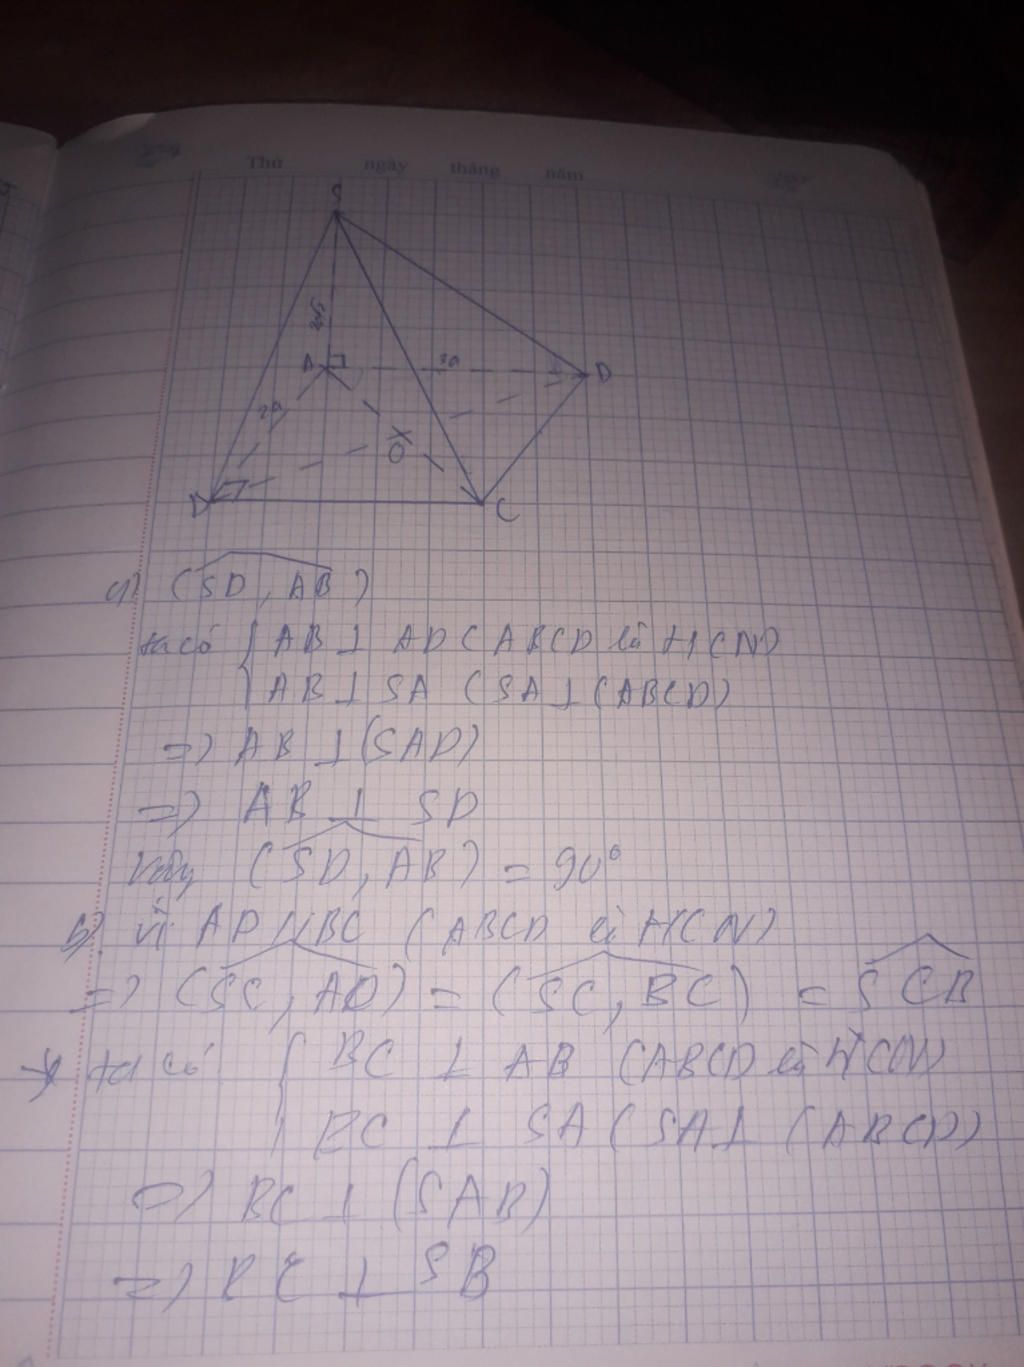 Thứ ngày tháng năm
S
A
2a
D
2a
O
C
a) (SD, AB)
ta có { AB ⊥ AD (ABCD là HCN)
AB ⊥ SA (SA ⊥ (ABCD)
=> AB ⊥ (SAD)
=> AB ⊥ SD
Vậy (SD, AB) = 90°
b) vì AD // BC (ABCD là HCN)
=> (SC, AD) = (SC, BC) = SCB
ta có { BC ⊥ AB (ABCD là HCN)
BC ⊥ SA (SA ⊥ (ABCD))
=> BC ⊥ (SAB)
=> BC ⊥ SB